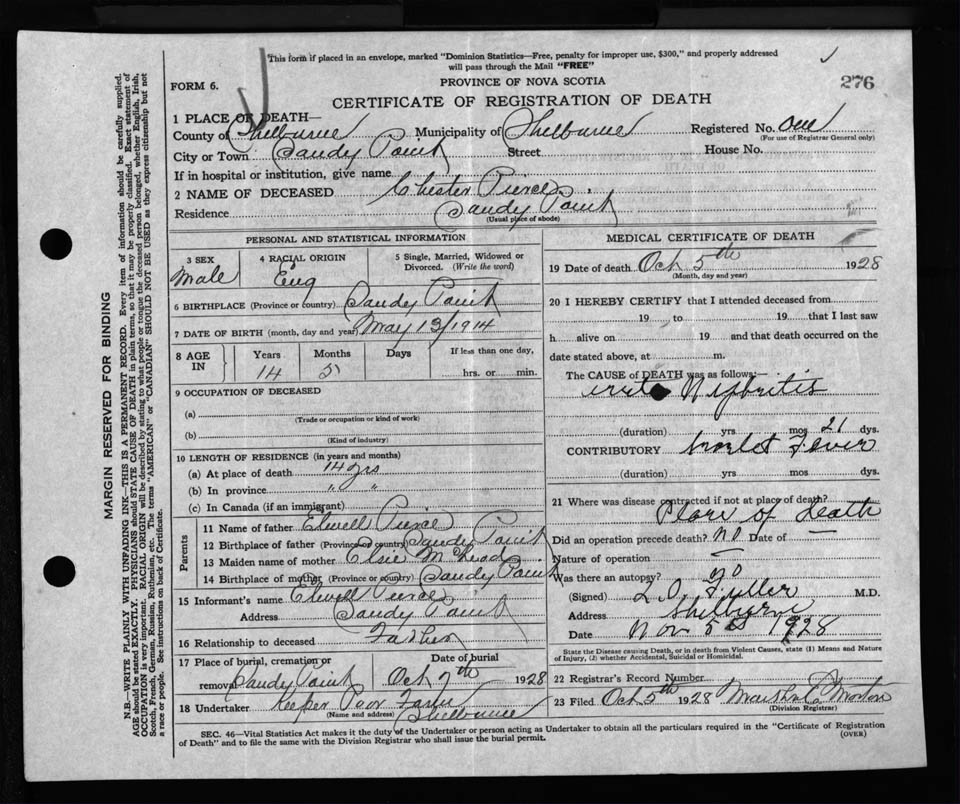 This form if placed in an envelope, marked "Dominion Statistics—Free, penalty for improper use, $300," and properly addressed
will pass through the Mail "FREE"
276
FORM 6.
PROVINCE OF NOVA SCOTIA
CERTIFICATE OF REGISTRATION OF DEATH
1 PLACE OF DEATH—
County of Shelburne Municipality of Shelburne Registered No. one
(For use of Registrar General only)
City or Town Sandy Point Street House No.
If in hospital or institution, give name
2 NAME OF DECEASED Chester Pierce
Residence Sandy Point
(Usual place of abode)
PERSONAL AND STATISTICAL INFORMATION
3 SEX 4 RACIAL ORIGIN 5 Single, Married, Widowed or
Divorced. (Write the word)
Male Eng
6 BIRTHPLACE (Province or country) Sandy Point
7 DATE OF BIRTH (month, day and year) May 13/1914
8 AGE IN Years Months Days If less than one day,
14 5 hrs. or min.
9 OCCUPATION OF DECEASED
(a)
(Trade or occupation or kind of work)
(b)
(Kind of industry)
10 LENGTH OF RESIDENCE (in years and months)
(a) At place of death 14 yrs
(b) In province " "
(c) In Canada (if an immigrant)
Parents
11 Name of father Elwell Pierce
12 Birthplace of father (Province or country) Sandy Point
13 Maiden name of mother Elsie McLeod
14 Birthplace of mother (Province or country) Sandy Point
15 Informant's name Elwell Pierce
Address Sandy Point
16 Relationship to deceased Father
17 Place of burial, cremation or Date of burial
removal Sandy Point Oct 7th 1928
18 Undertaker Keeper Poor Farm
(Name and address) Shelburne
MEDICAL CERTIFICATE OF DEATH
19 Date of death Oct 5th 1928
(Month, day and year)
20 I HEREBY CERTIFY that I attended deceased from
19 to 19 that I last saw
h alive on 19 and that death occurred on the
date stated above, at m.
The CAUSE of DEATH was as follows:—
Nephritis
(duration) yrs mos 21 dys.
CONTRIBUTORY Scarlet Fever
(duration) yrs mos dys.
21 Where was disease contracted if not at place of death?
Place of death
Did an operation precede death? No Date of
Nature of operation
Was there an autopsy? No
(Signed) L.O. Fuller M.D.
Address Shelburne
Date Nov 5 1928
State the Disease causing Death, or in death from Violent Causes, state (1) Means and Nature
of Injury, (2) whether Accidental, Suicidal or Homicidal.
22 Registrar's Record Number
23 Filed Oct 5th 1928 Marshal Morton
(Division Registrar)
SEC. 46—Vital Statistics Act makes it the duty of the Undertaker or person acting as Undertaker to obtain all the particulars required in the "Certificate of Registration
of Death" and to file the same with the Division Registrar who shall issue the burial permit. (OVER)
MARGIN RESERVED FOR BINDING
N.B.—WRITE PLAINLY WITH UNFADING INK—THIS IS A PERMANENT RECORD. Every item of information should be carefully supplied.
AGE should be stated EXACTLY. PHYSICIANS should STATE CAUSE OF DEATH in plain terms, so that it may be properly classified. Exact statement of
OCCUPATION is very important. RACIAL ORIGIN will be described by stating to what people or tongue the deceased person belonged, whether English, Irish,
Scotch, French, German, Russian, Ruthenian, etc. The terms "AMERICAN" or "CANADIAN" SHOULD NOT BE USED as they express citizenship but not
a race or people. See instructions on back of Certificate.